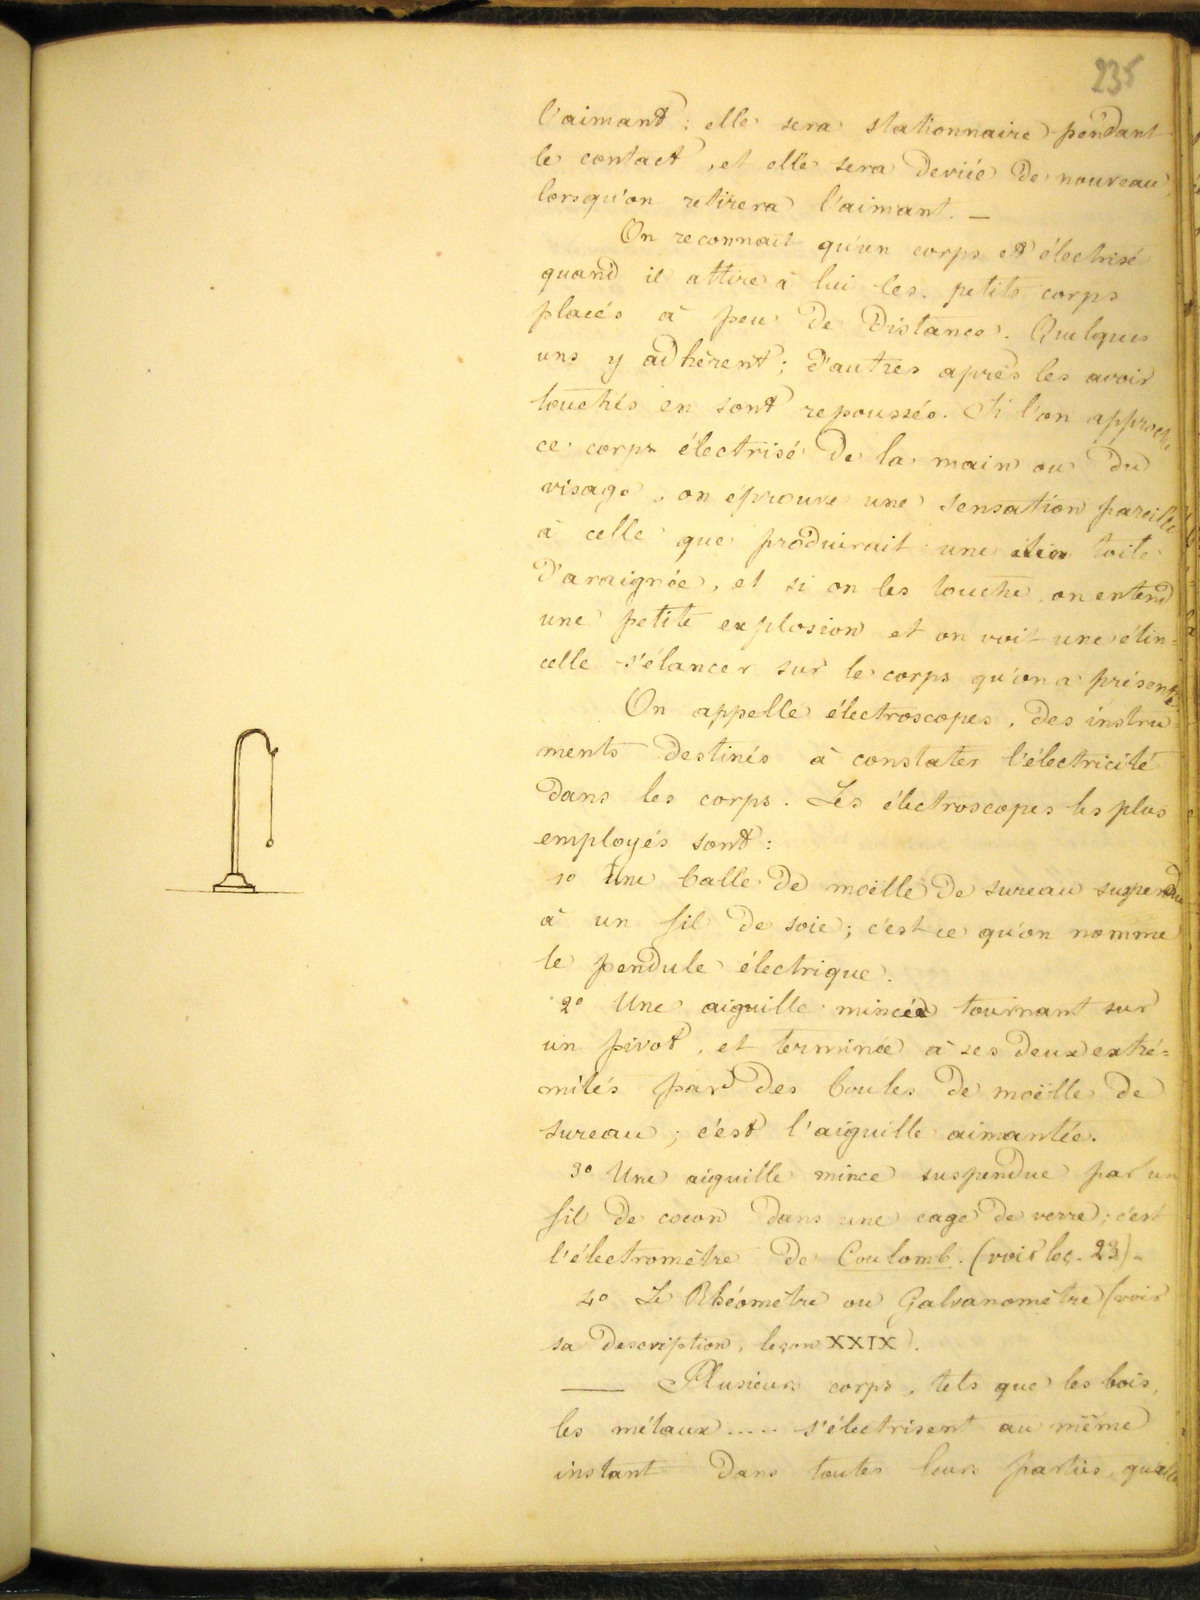 235
l'aimant ; elle sera stationnaire pendant
le contact, et elle sera deviée de nouveau
lorsqu'on retirera l'aimant. —
On reconnait qu'un corps est électrisé
quand il attire à lui les petits corps
placés à peu de distance. Quelques
uns y adhèrent ; d'autres après les avoir
touchés en sont repoussés. Si l'on approche
ce corps électrisé de la main ou du
visage, on éprouve une sensation pareille
à celle que produirait une toile
d'araignée, et si on les touche, on entend
une petite explosion et on voit une étin-
celle s'élancer sur le corps qu'on a présenté
On appelle électroscopes, des instru-
ments destinés à constater l'électricité
dans les corps. Les électroscopes les plus
employés sont :
1º Une balle de moëlle de sureau suspendue
à un fil de soie ; c'est ce qu'on nomme
le pendule électrique.
2º Une aiguille mince tournant sur
un pivot, et terminée à ses deux extré=
mités par des boules de moëlle de
sureau ; c'est l'aiguille aimantée.
3º Une aiguille mince suspendue par un
fil de cocon dans une cage de verre ; c'est
l'électromètre de Coulomb. (voir leç. 23) -
4º Le Rhéomètre ou Galvanomètre (voir
sa description, leçon XXIX).
— Plusieurs corps, tels que les bois,
les métaux ..... s'électrisent au même
instant dans toutes leurs parties, quelle